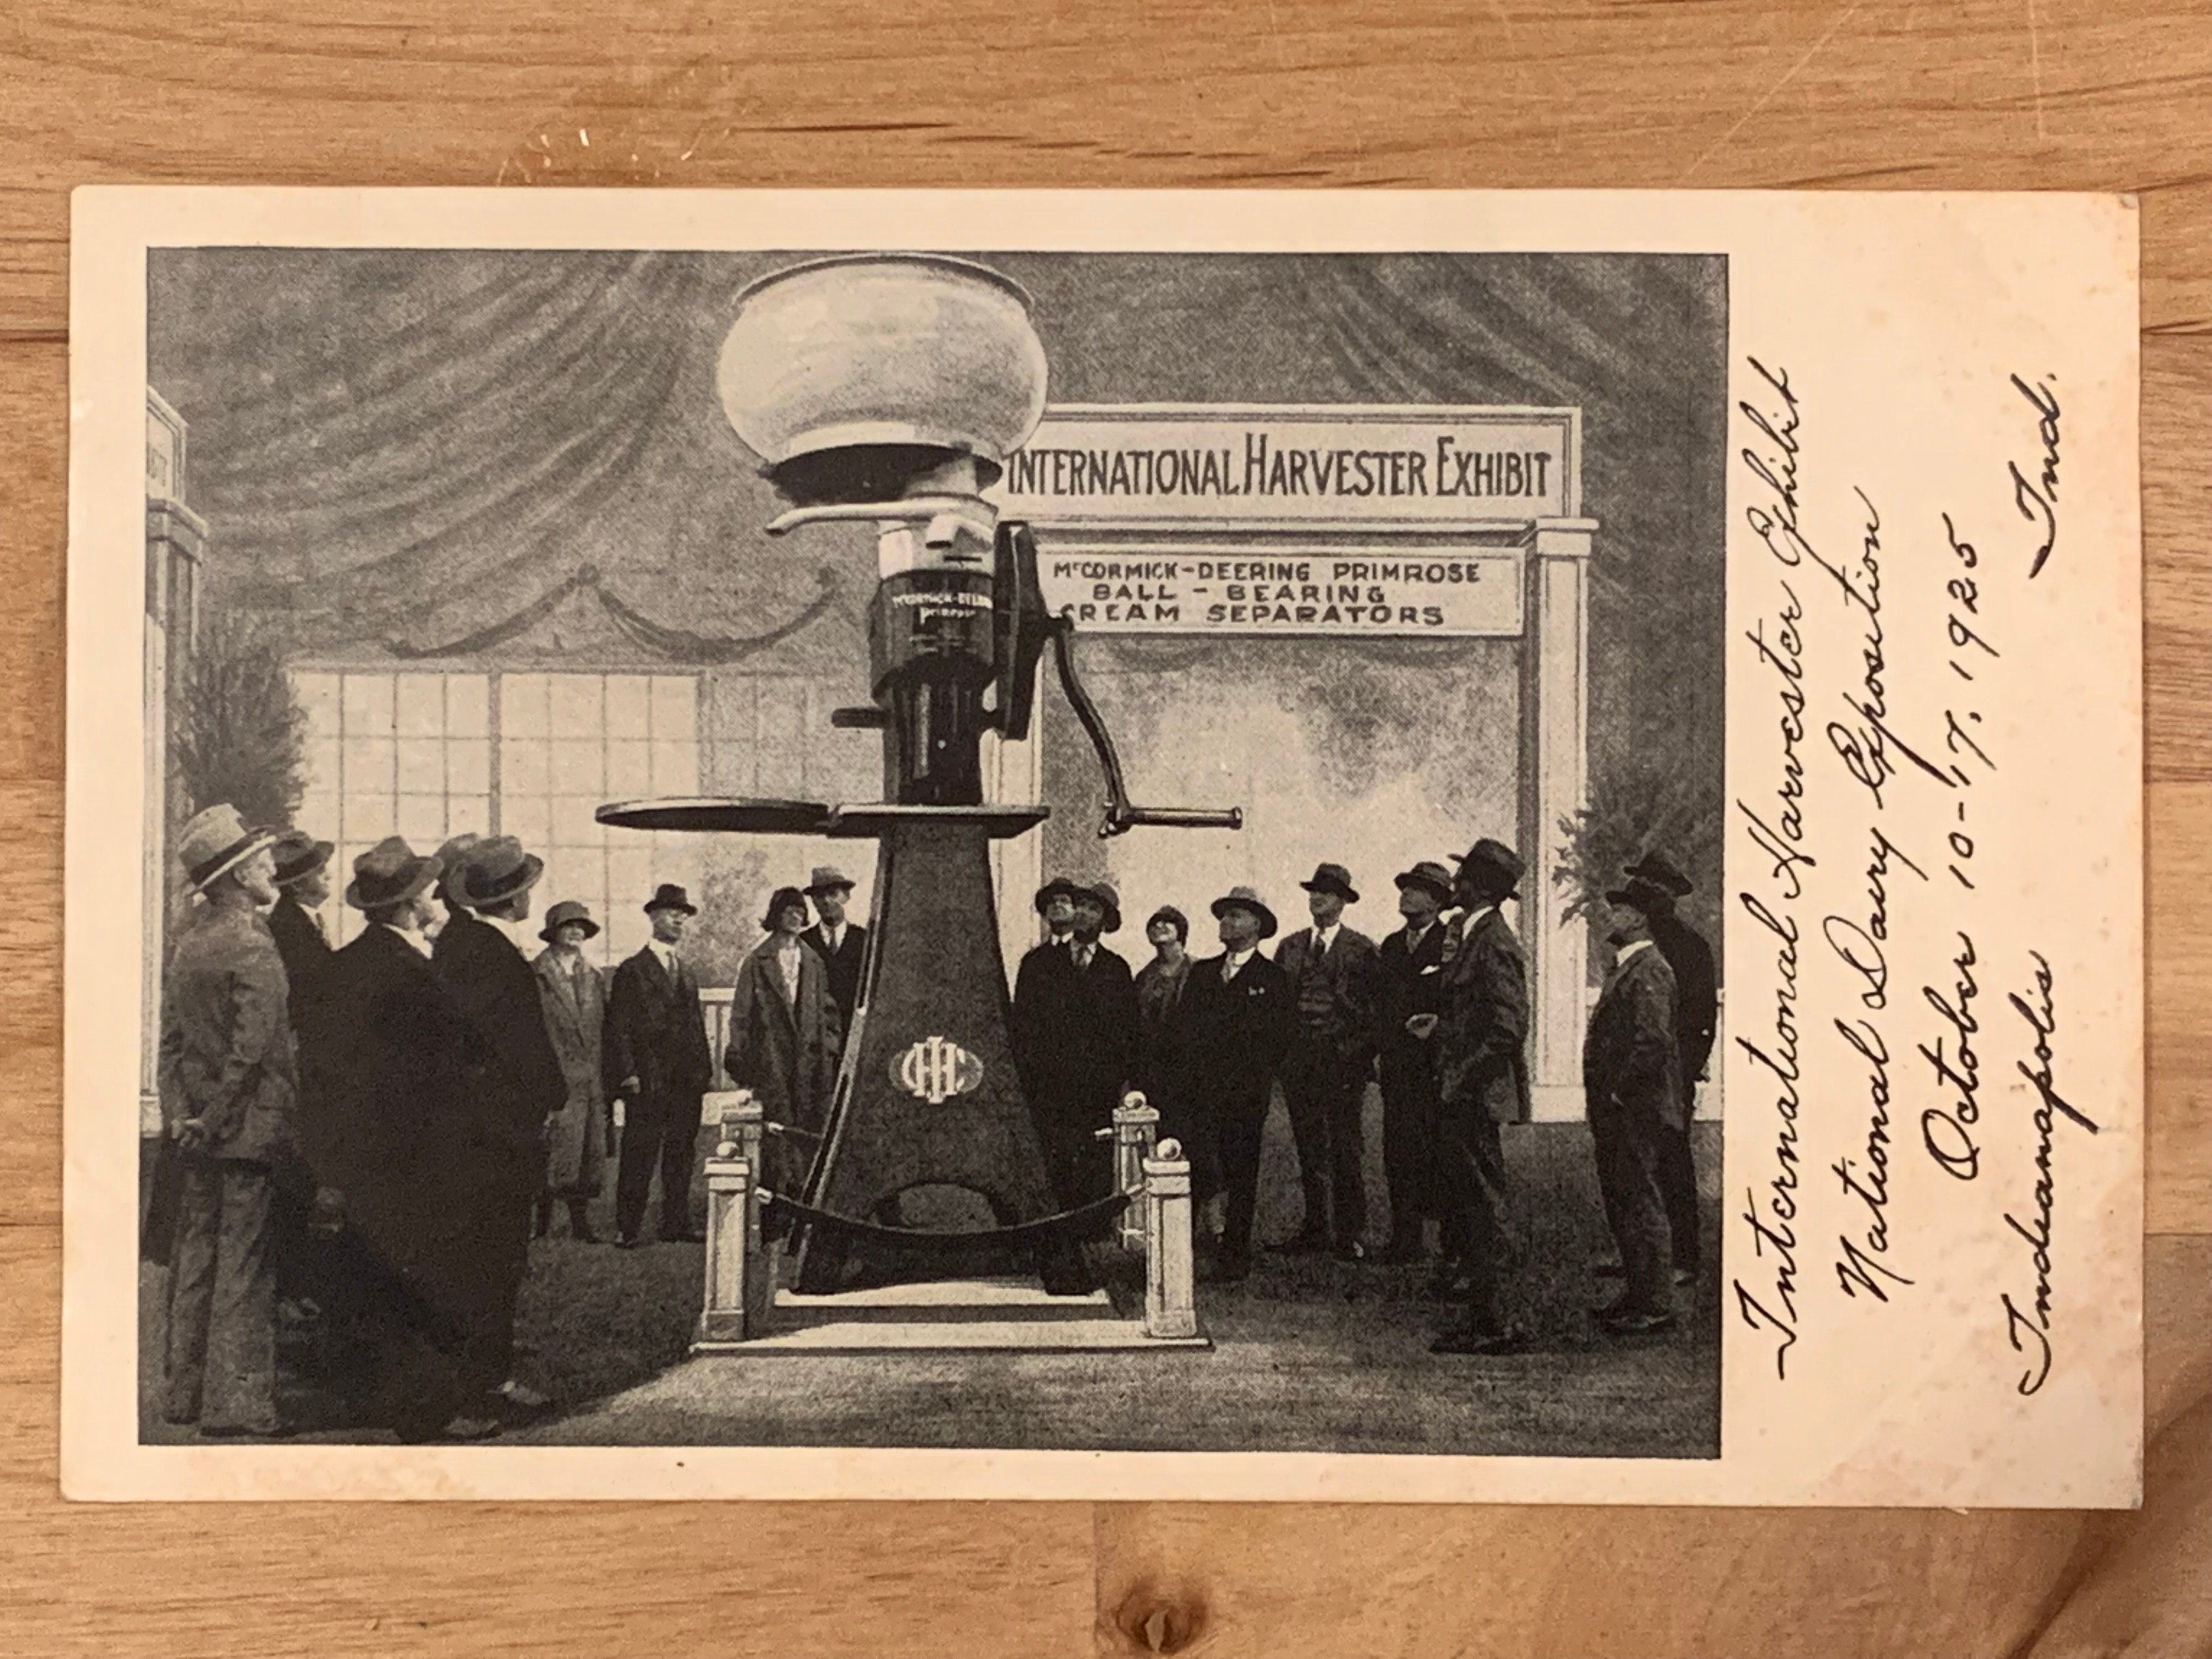 INTERNATIONAL HARVESTER EXHIBIT
McCORMICK-DEERING PRIMROSE
BALL - BEARING
CREAM SEPARATORS
McCORMICK-DEERING
Primrose
IHC
International Harvester Exhibit
National Dairy Exposition
October 10-17, 1925
Indianapolis Ind.